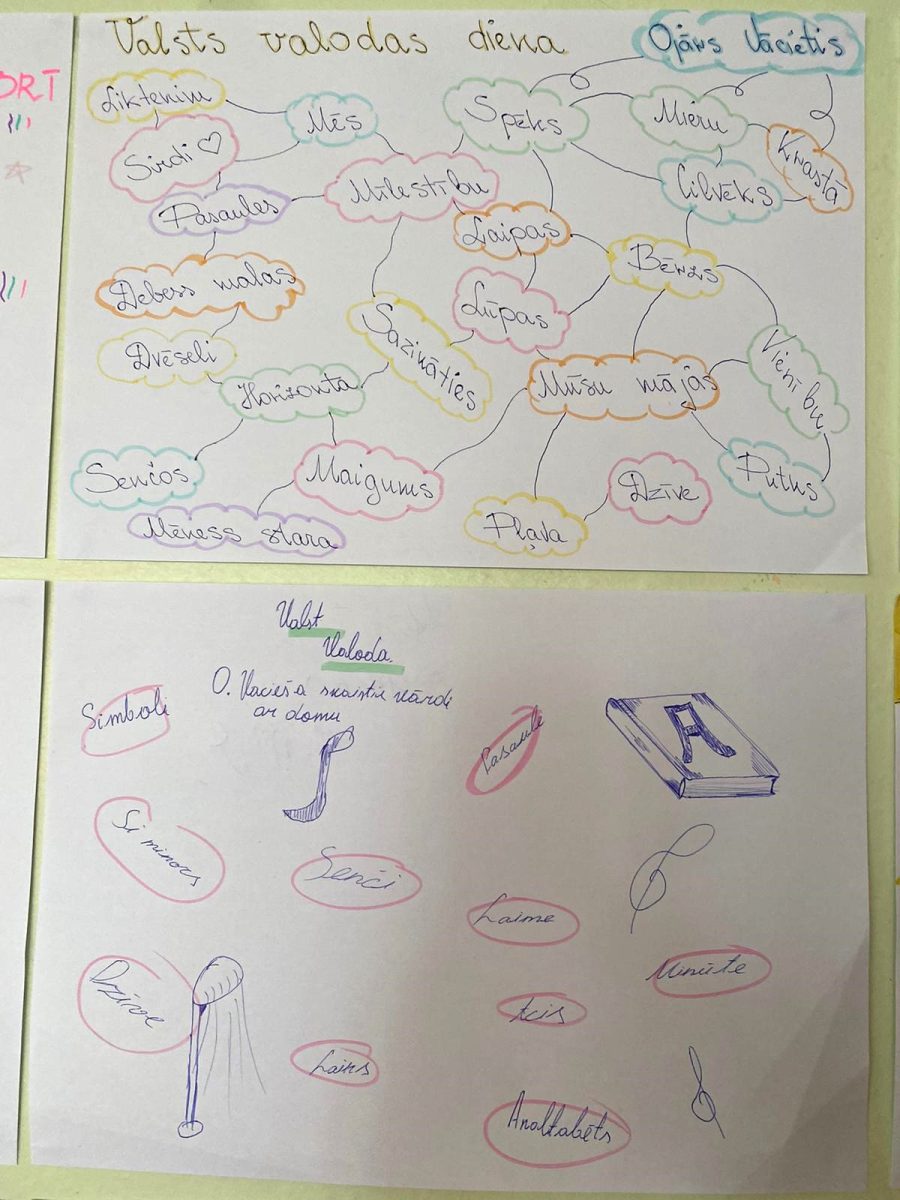 Valsts valodas diena
Ojārs Vācietis
ORT
Liktenim
Mēs
Spēks
Mieru
Krastā
Sirdi
Mīlestību
Cilvēks
Pasaules
Laipas
Bērzs
Debess malas
Lūpas
Sazināties
Dvēseli
Horizonta
Mūsu mājās
Vienību
Senčos
Maigums
Dzīve
Putns
Mēness stara
Pļava
Valst
Valoda.
O. Vacieša skaistie vārdi
ar domu
Simboli
Pasaule
A
Si minors
Senči
Laime
Minūte
Dzirne
Acis
Lairs
Analfabēts